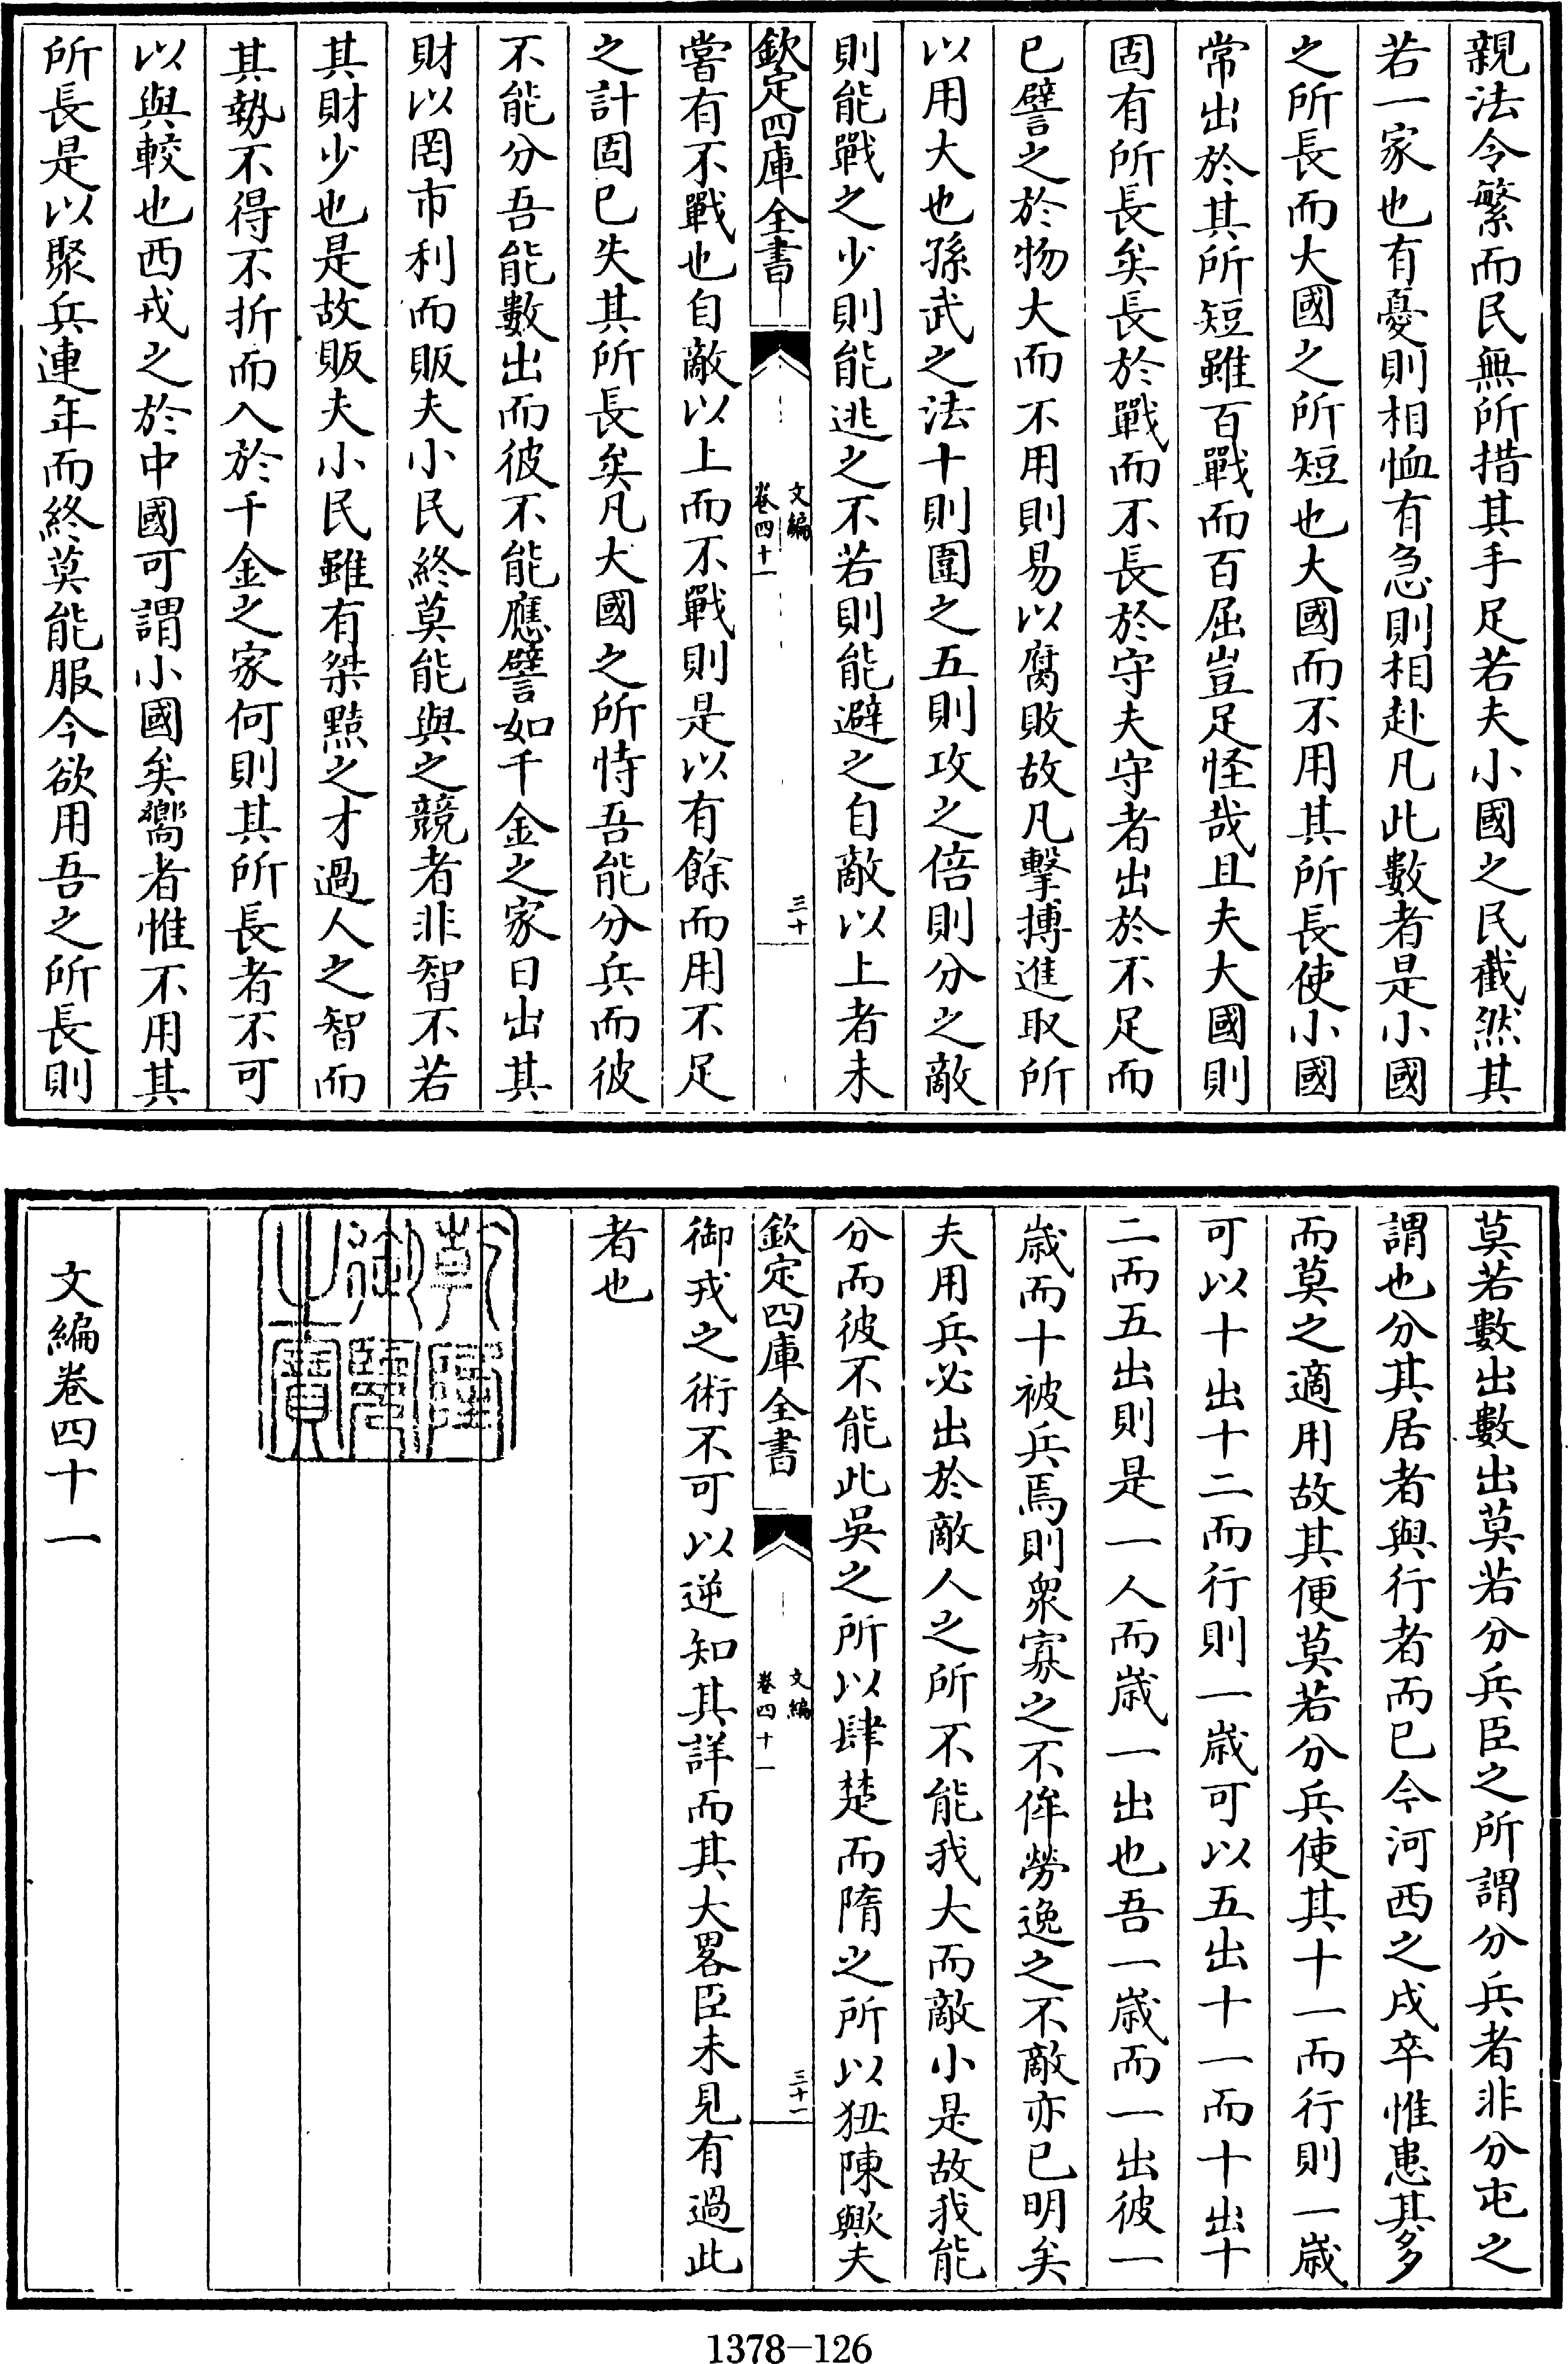 親法令繁而民無所措其手足若夫小國之民截然其
若一家也有憂則相恤有急則相赴凡此數者是小國
之所長而大國之所短也大國而不用其所長使小國
常出於其所短雖百戰而百屈豈足怪哉且夫大國則
固有所長矣長於戰而不長於守夫守者出於不足而
已譬之於物大而不用則易以腐敗故凡擊搏進取所
以用大也孫武之法十則圍之五則攻之倍則分之敵
則能戰之少則能逃之不若則能避之自敵以上者未
欽定四庫全書
文編
卷四十一
三十
嘗有不戰也自敵以上而不戰則是以有餘而用不足
之計固已失其所長矣凡大國之所恃吾能分兵而彼
不能分吾能數出而彼不能應譬如千金之家日出其
財以罔市利而販夫小民終莫能與之競者非智不若
其財少也是故販夫小民雖有桀黠之才過人之智而
其勢不得不折而入於千金之家何則其所長者不可
以與較也西戎之於中國可謂小國矣嚮者惟不用其
所長是以聚兵連年而終莫能服今欲用吾之所長則
莫若數出數出莫若分兵臣之所謂分兵者非分屯之
謂也分其居者與行者而已今河西之戍卒惟患其多
而莫之適用故其便莫若分兵使其十一而行則一歲
可以十出十二而行則一歲可以五出十一而十出十
二而五出則是一人而歲一出也吾一歲而一出彼一
歲而十被兵焉則衆寡之不侔勞逸之不敵亦已明矣
夫用兵必出於敵人之所不能我大而敵小是故我能
分而彼不能此吳之所以肆楚而隋之所以狃陳歟夫
欽定四庫全書
文編
卷四十一
三十一
御戎之術不可以逆知其詳而其大畧臣未見有過此
者也
乾隆御覽之寶
文編卷四十一
1378-126